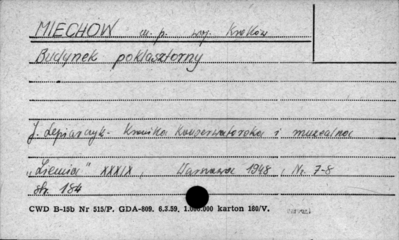 MIECHÓW m. p. woj. Kraków
Budynek poklasztorny
J. Lepiarczyk- Kronika Konserwatorska i muzealna
„Ziemia" XXXIX, Warszawa 1948, Nr. 7-8
str. 184
CWD B-15b Nr 515/P. GDA-809. 6.3.59, 1.000.000 karton 180/V.